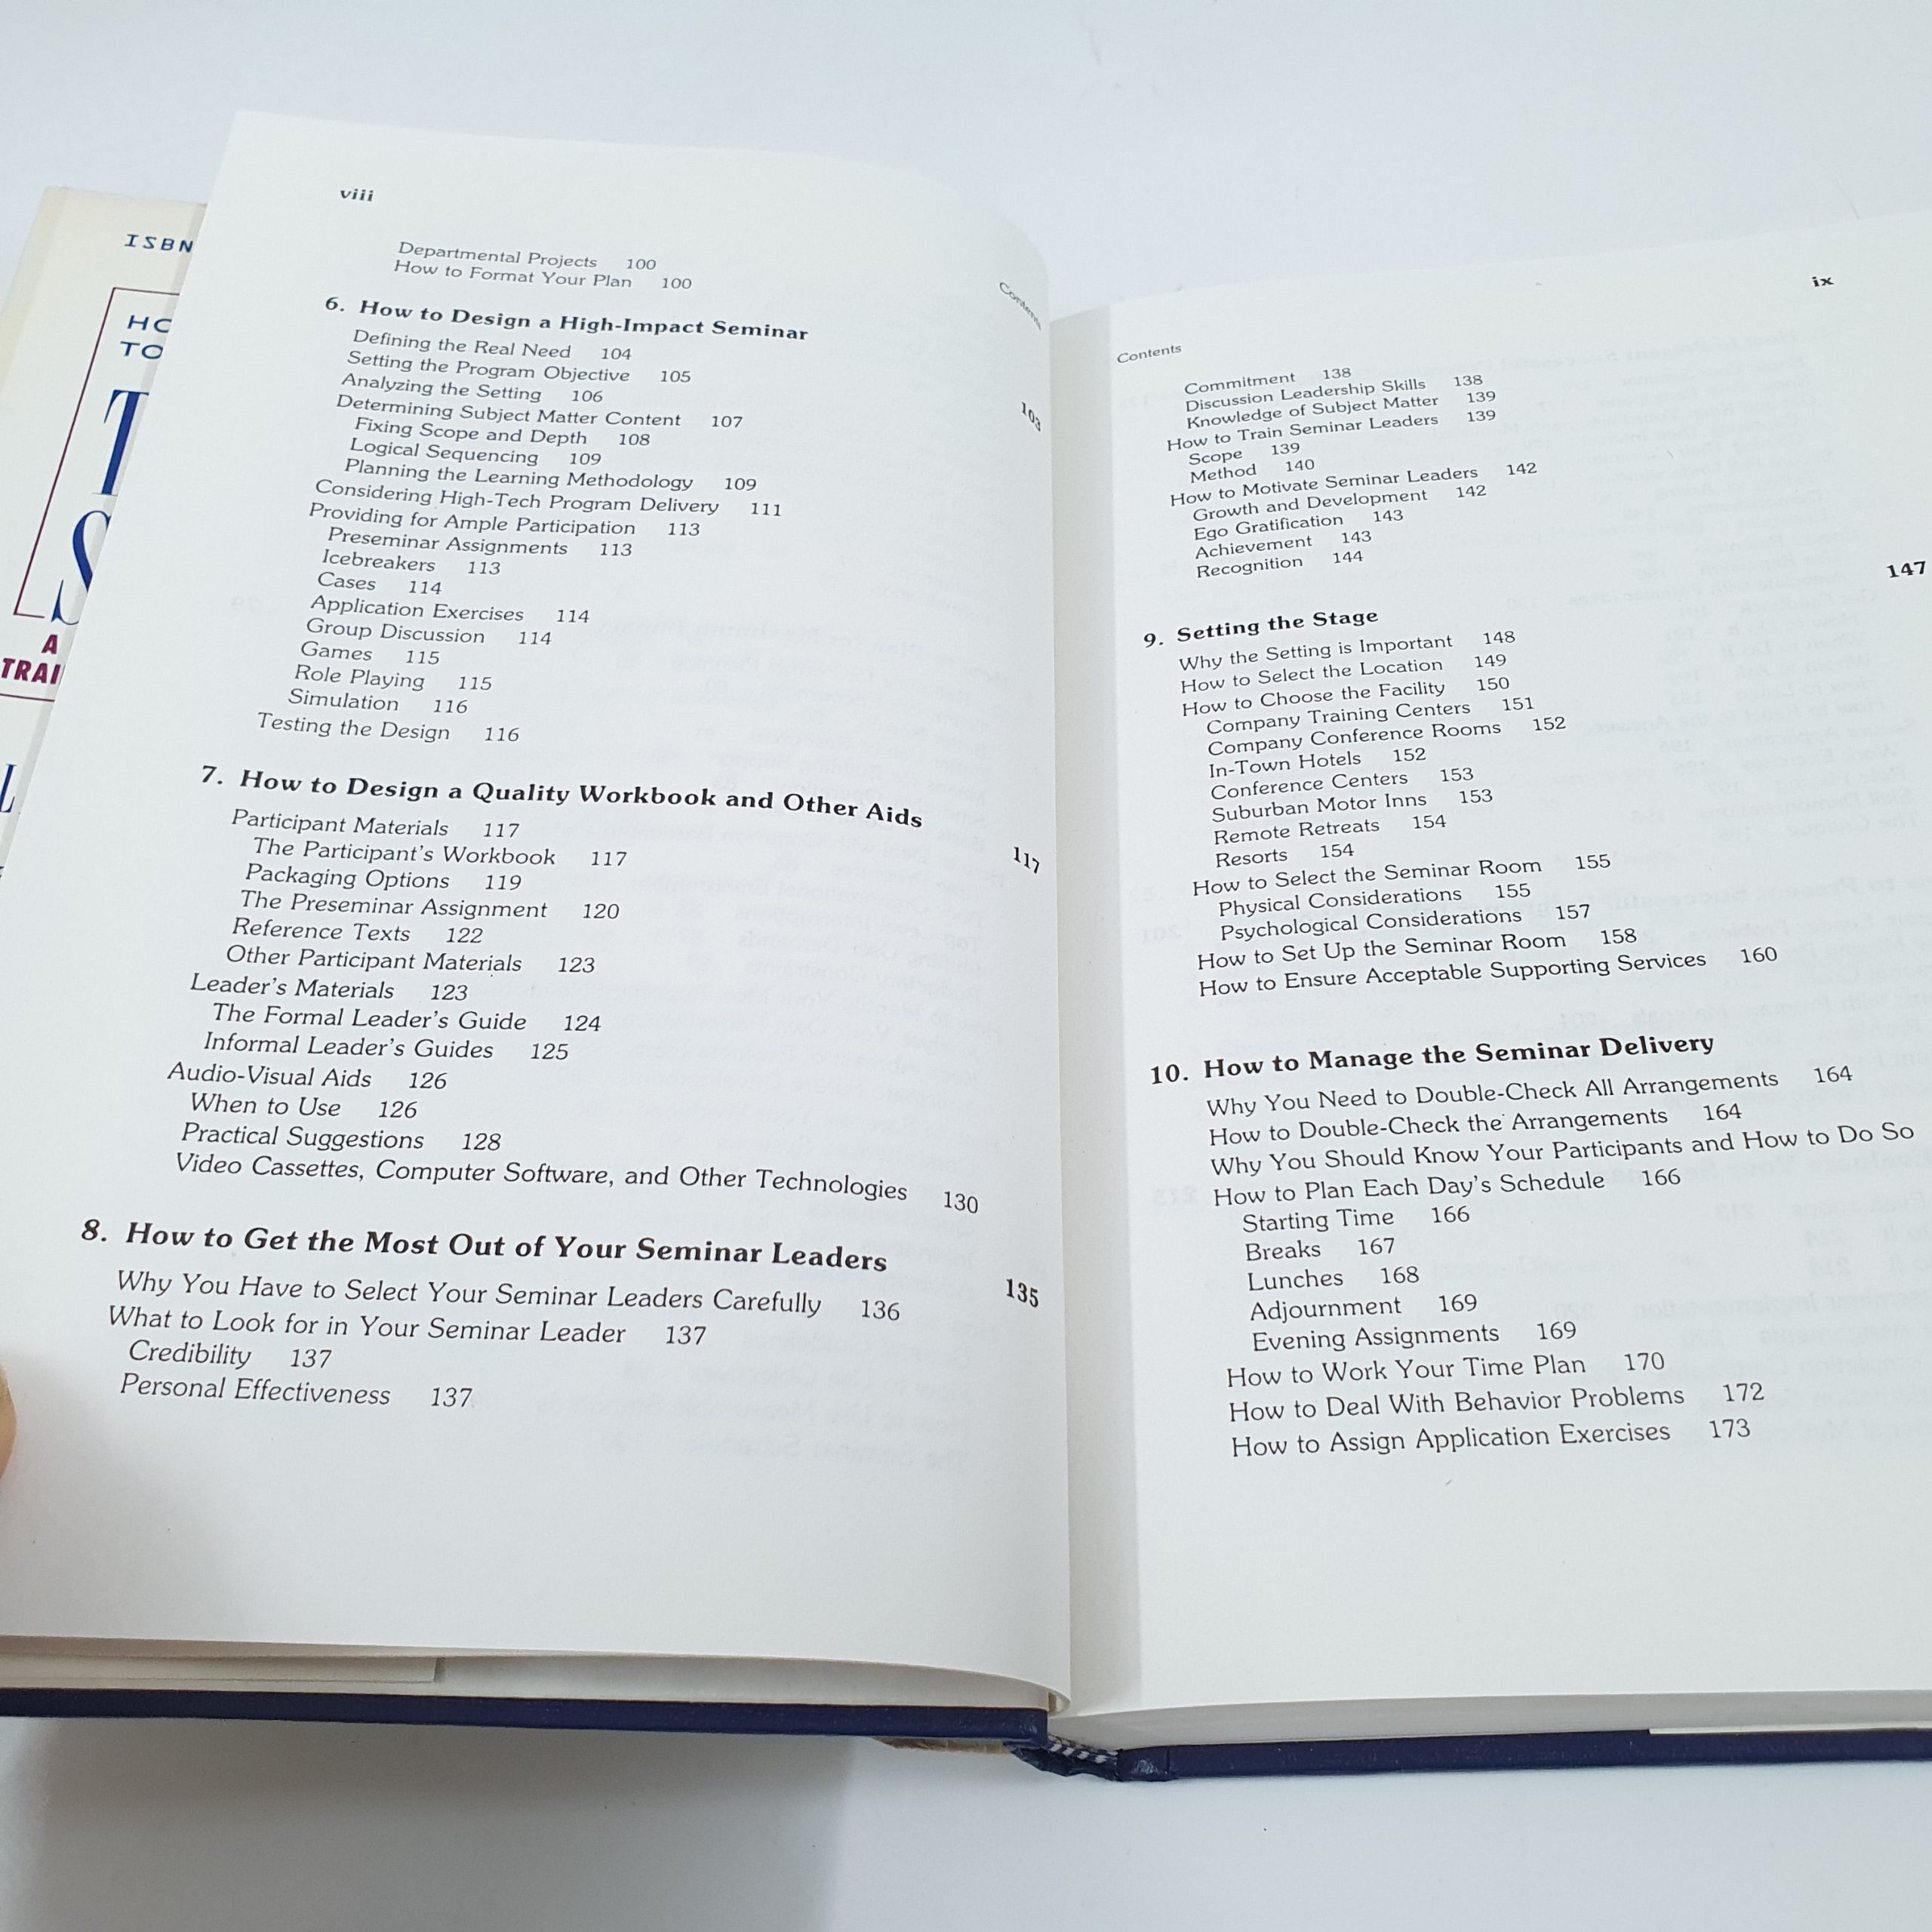 ISBN
HO
TO
T
S
A
TRAI
viii
Contents
Departmental Projects 100
How to Format Your Plan 100
6. How to Design a High-Impact Seminar 103
Defining the Real Need 104
Setting the Program Objective 105
Analyzing the Setting 106
Determining Subject Matter Content 107
Fixing Scope and Depth 108
Logical Sequencing 109
Planning the Learning Methodology 109
Considering High-Tech Program Delivery 111
Providing for Ample Participation 113
Preseminar Assignments 113
Icebreakers 113
Cases 114
Application Exercises 114
Group Discussion 114
Games 115
Role Playing 115
Simulation 116
Testing the Design 116
7. How to Design a Quality Workbook and Other Aids 117
Participant Materials 117
The Participant's Workbook 117
Packaging Options 119
The Preseminar Assignment 120
Reference Texts 122
Other Participant Materials 123
Leader's Materials 123
The Formal Leader's Guide 124
Informal Leader's Guides 125
Audio-Visual Aids 126
When to Use 126
Practical Suggestions 128
Video Cassettes, Computer Software, and Other Technologies 130
8. How to Get the Most Out of Your Seminar Leaders 135
Why You Have to Select Your Seminar Leaders Carefully 136
What to Look for in Your Seminar Leader 137
Credibility 137
Personal Effectiveness 137
Contents ix
Commitment 138
Discussion Leadership Skills 138
Knowledge of Subject Matter 139
How to Train Seminar Leaders 139
Scope 139
Method 140
How to Motivate Seminar Leaders 142
Growth and Development 142
Ego Gratification 143
Achievement 143
Recognition 144
9. Setting the Stage 147
Why the Setting is Important 148
How to Select the Location 149
How to Choose the Facility 150
Company Training Centers 151
Company Conference Rooms 152
In-Town Hotels 152
Conference Centers 153
Suburban Motor Inns 153
Remote Retreats 154
Resorts 154
How to Select the Seminar Room 155
Physical Considerations 155
Psychological Considerations 157
How to Set Up the Seminar Room 158
How to Ensure Acceptable Supporting Services 160
10. How to Manage the Seminar Delivery
Why You Need to Double-Check All Arrangements 164
How to Double-Check the Arrangements 164
Why You Should Know Your Participants and How to Do So
How to Plan Each Day's Schedule 166
Starting Time 166
Breaks 167
Lunches 168
Adjournment 169
Evening Assignments 169
How to Work Your Time Plan 170
How to Deal With Behavior Problems 172
How to Assign Application Exercises 173